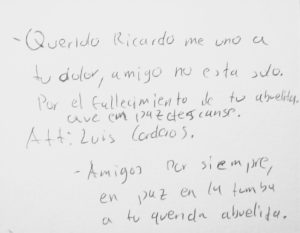 - Querido Ricardo me uno a
tu dolor, amigo no esta solo.
Por el fallecimiento de tu abuelita.
que en paz descanse.
Att: Luis Cordero S.
- Amigos por siempre,
en paz en la tumba
a tu querida abuelita.